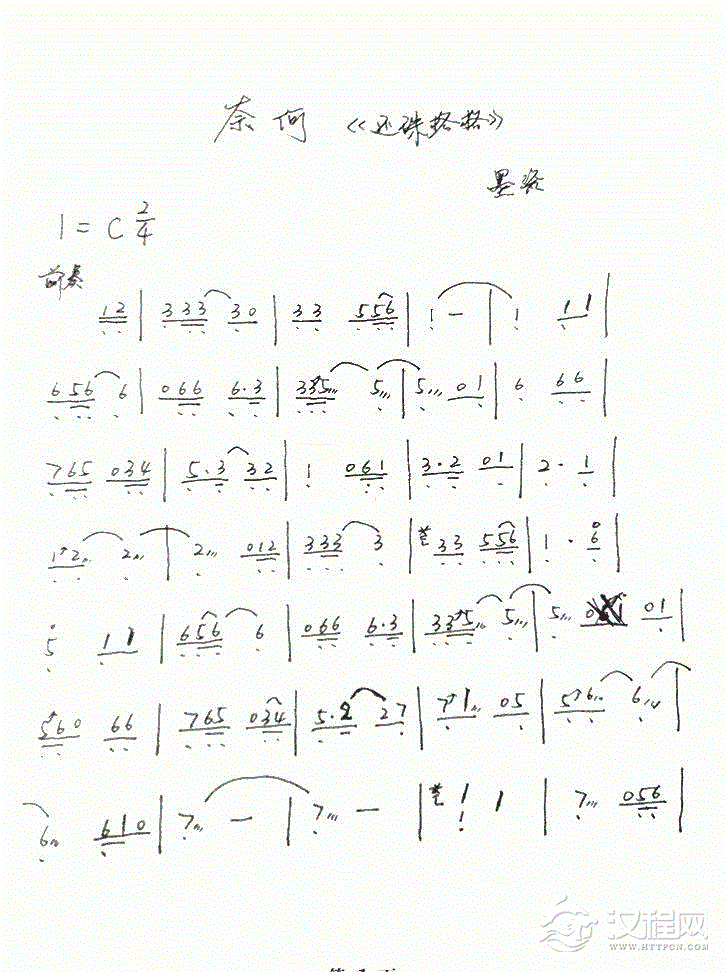 奈何 《还珠格格》
墨落
1=C 2/4
前奏
12 | 333 30 | 33 556 | 1 — | 1 11 |
656 6 | 066 6·3 | 335 5 | 5 01 | 6 66 |
765 034 | 5·3 32 | 1 061 | 3·2 01 | 2·1 |
12 2 | 2 012 | 333 3 | 33 556 | 1·6 |
5 11 | 656 6 | 066 6·3 | 335 5 | 5 01 |
560 66 | 765 034 | 5·2 27 | 71 05 | 56 6 |
6 610 | 7 — | 7 — | 1 1 | 7 056 |
汉程网
WWW.HTTPCN.COM